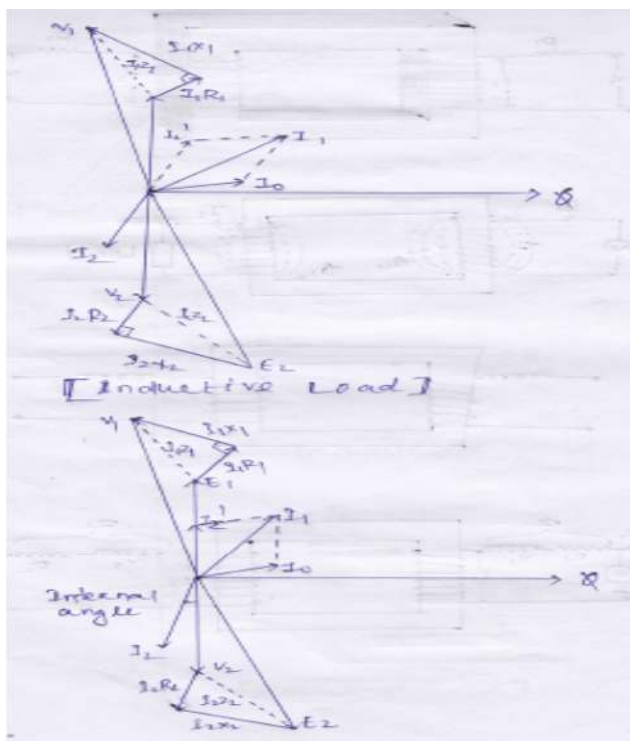 V1
I1X1
I1Z1
I1R1
I1'
I1
I0
Φ
I2
V2
I2R2
I2Z2
I2X2
E2
[Inductive Load]
V1
I1X1
I1Z1
I1R1
E1
I1'
I1
I0
Φ
Internal
angle
I2
V2
I2R2
I2Z2
I2X2
E2